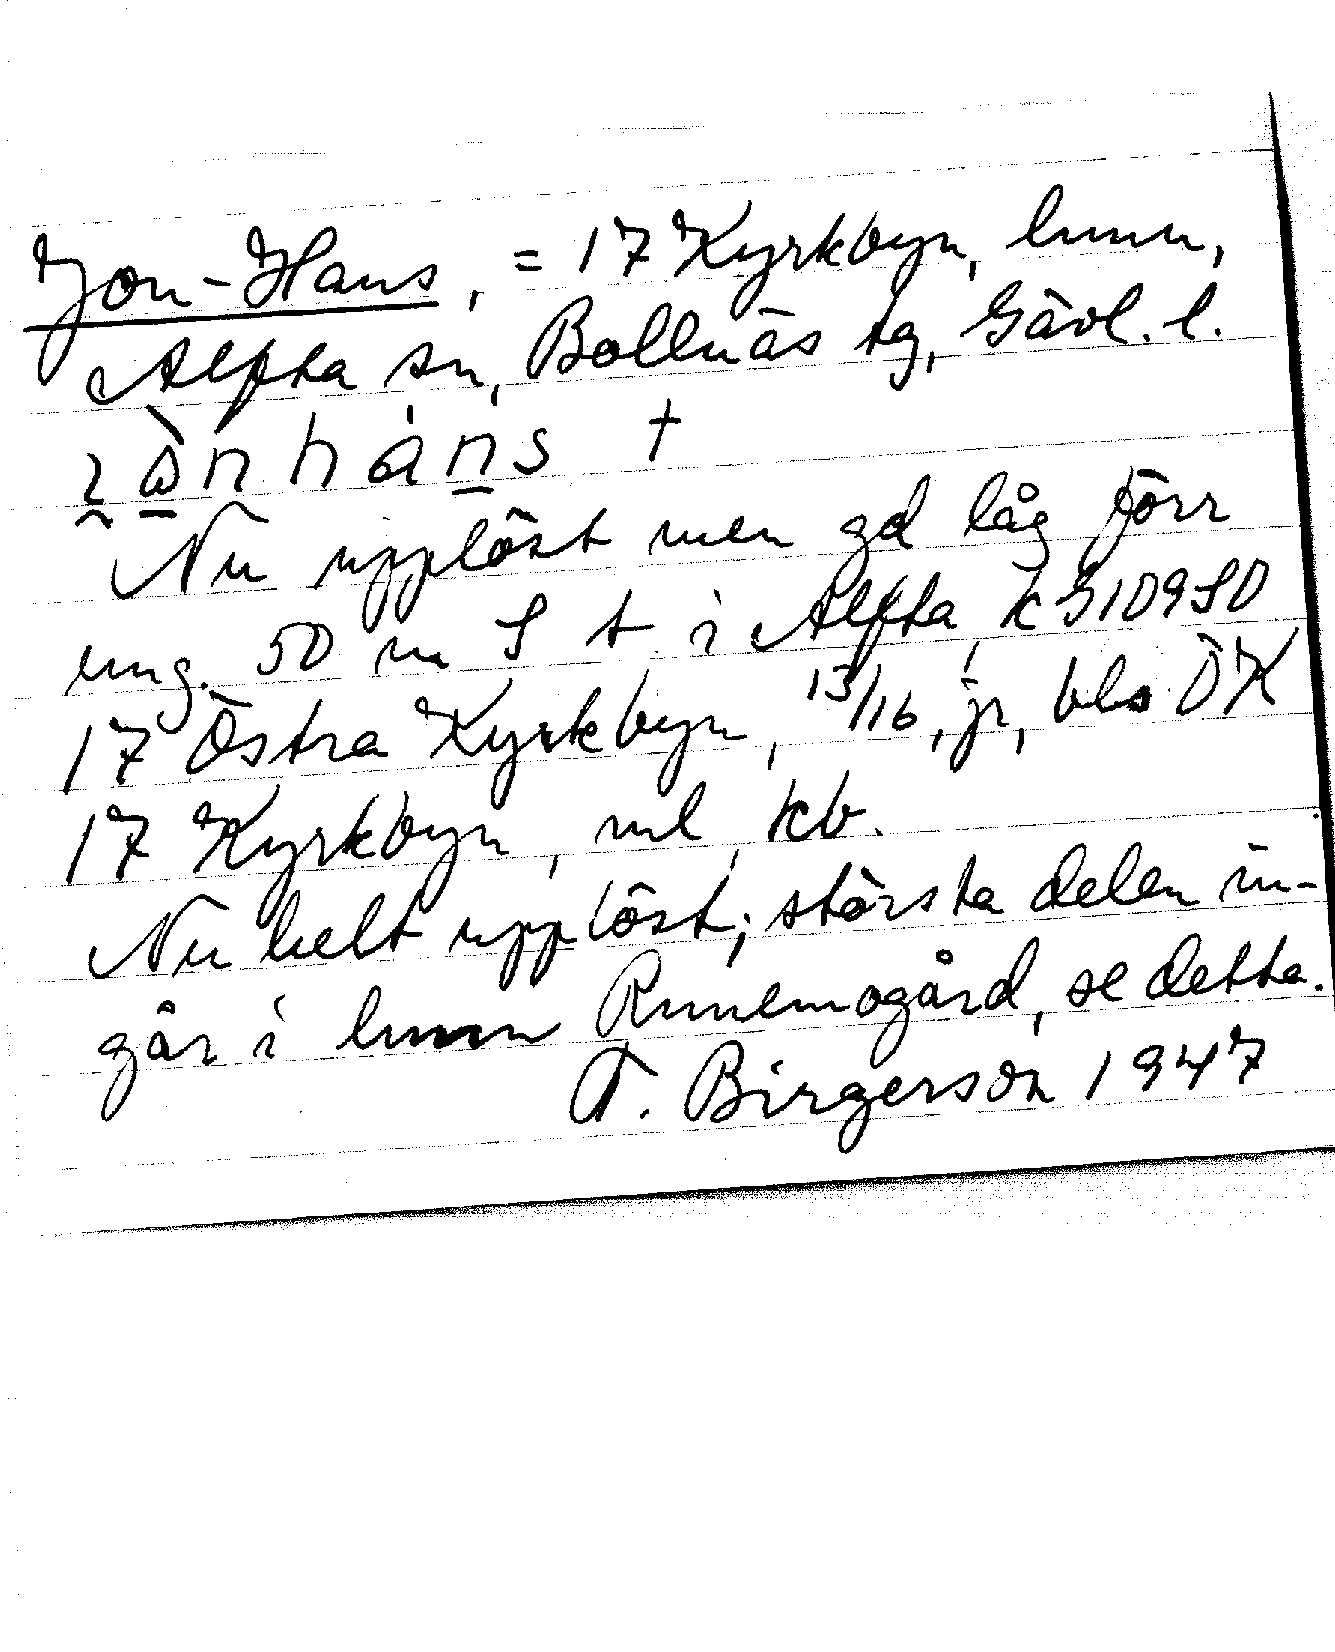 Jon-Hans, = 17 Kyrkbyn, hmn,
Alfta sn, Bollnäs tg, Gävl. l.
Nu upplöst men gd låg förr
ung. 50 m S t i Alfta, k
17 Östra Kyrkbyn, 13/16, jr, bls ÖK
17 Kyrkbyn, ml, kb.
Nu helt upplöst; största delen in-
går i hmn Runemogård, se detta.
T. Birgerson 1947